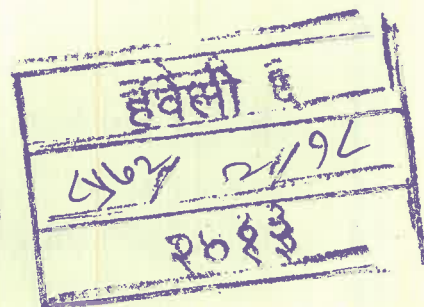 हवेली ६
८५७२/ २/१८
२०१३